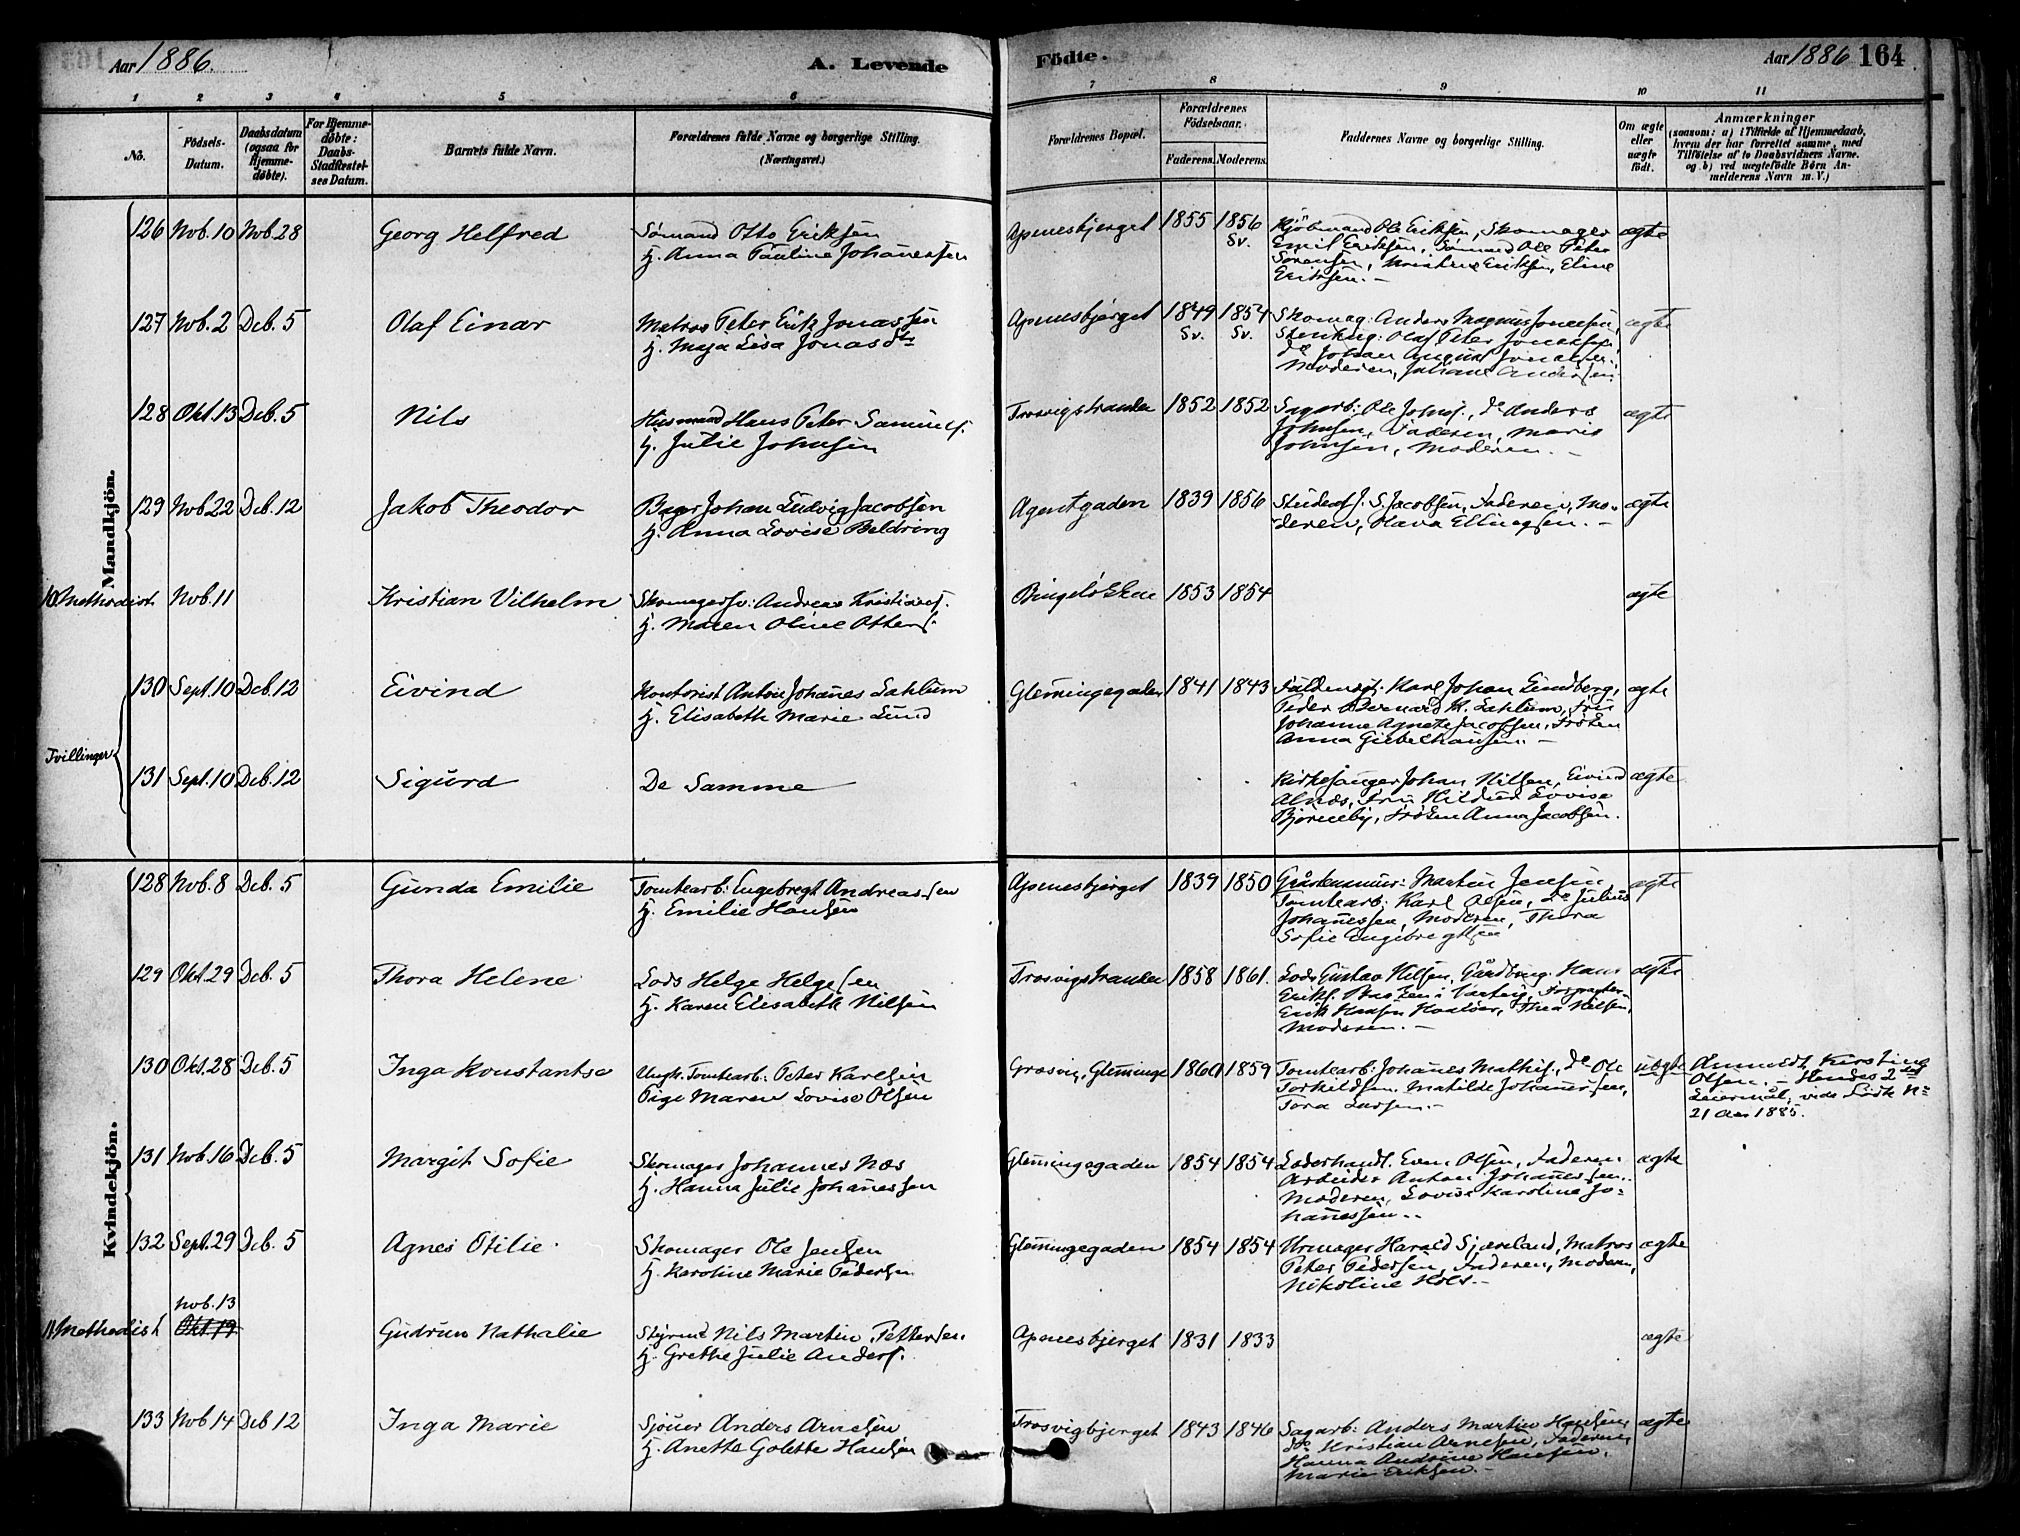 Aar 1886.
A. Levende
Födte.
Aar 1886 164
1 2 3 4 5 6 7 8 9 10 11
No.
Födsels-Datum.
Daabsdatum (ogsaa for Hjemme-døbte).
For Hjemme-døbte: Daabs-Stadfæstel-ses Datum.
Barnets fulde Navn.
Forældrenes fulde Navne og borgerlige Stilling. (Næringsvei.)
Forældrenes Bopæl.
Forældrenes Födselsaar.
Faderens. Moderens.
Faddernes Navne og borgerlige Stilling.
Om ægte eller uægte født.
Anmærkninger
(saasom: a) i Tilfælde af Hjemmedaab, hvem der har forrettet samme, med Tilföielse af to Daabsvidners Navne. og b) ved uægtefødte Börn An-melderens Navn m. V.)
Mandkjön.
126 Nov. 10 Nov. 28 Georg Helfred
Sømand Otto Eriksen
H. Anna Pauline Johanessen
Apenesbjerget 1855 1856 Sv.
Kjøbmand Ole Eriksen, Skomager
Emil Eriksen, Sømand Ole Peter
Sørensen, Kristine Eriksen, Eline
Eriksen. –
ægte
127 Nov. 2 Deb. 5 Olaf Einar
Matros Peter Erik Jonassen
H. Maja Lisa Jonasdtr
Apenesbjerget 1849 Sv. 1854 Sv.
Skomag: Anders Magnus Jonassen,
Stenhug: Olaf Peter Jonassen,
do Johan August Jonassen,
Moderen, Juliane Andersen.
ægte
128 Okt. 13 Deb. 5 Nils
Husmand Hans Peter Samuels.
H. Julie Johnsen
Trosvigstranden 1852 1852
Sagarb: Ole Johns., do Anders
Johnsen, Faderen, Marie
Johnsen, Moderen. –
ægte
129 Nov. 22 Deb. 12 Jakob Theodor
Bager Johan Ludvig Jacobsen
H. Anna Lovise Beldring
Agentgaden 1839 1856
Student J. S. Jacobsen, Faderen, Mo-
deren, Olava Ellingsen. –
ægte
10. Methodist. Nov. 11 Kristian Vilhelm
Skomagersv: Andreas Kristians.
H. Maren Oline Otters.
Bingeløkken 1853 1854
ægte
Tvillinger
130 Sept. 10 Deb. 12 Eivind
Kontorist Anton Johanes Sahlum
H. Elisabeth Marie Lund
Glemingegaden 1841 1843
Karl Johan Lindberg,
Peder Bernard K. Sahlum, Fru
Johanne Agnete Jacobsen, Frøken
Anna Giebelhausen. –
ægte
131 Sept. 10 Deb. 12 Sigurd
De Samme
Kirkesanger Johan Nilsen, Eivind
Alnæs, Fru Hildur Lovise
Bjørneby, Frøken Anna Jacobsen.
ægte
Kvindekjön.
128 Nov. 8 Deb. 5 Gunda Emilie
Tomtearb: Engebregt Andreassen
H. Emilie Hansen
Apenesbjerget 1839 1850
Gråstensmur: Martin Jensen
Tomtearb: Karl Olsen, do Julius
Johanessen, Moderen, Thora
Sofie Engebregtsen
ægte
129 Okt. 29 Deb. 5 Thora Helene
Lods Helge Helgesen
H. Karen Elisabeth Nilsen
Trosvigstranden 1858 1861.
Lods Gustav Nilsen, Gårdbrug. Hans
Eriks.
Erik Hansen Thea Nilsen,
Moderen. –
ægte
130 Okt. 28 Deb. 5 Inga Konstantse
Ungk. Tomtearb: Peter Karlsen
Pige Maren Lovise Olsen
Græsvig, Gleminge 1860 1859
Tomtearb. Johanes Mathis., do Ole
Torkildsen, Matilde Johanessen,
Tora Larsen. –
uægte
Anmeldt, Kirstine
Olsen. – Hendes 2det
Leiermål, vide Födte No
21 Aar 1885.
131 Nov. 16 Deb. 5 Margit Sofie
Skomager Johannes Næs
H. Hanna Julie Johanessen
Glemingegaden 1854 1854
Læderhandl. Even Olsen, Faderen
Arbeider Anton Johanessen..
Moderen, Lovise Karoline Jo-
hanessen..
ægte
132 Sept. 29 Deb. 5 Agnes Otilie.
Skomager Ole Jensen
H. Karoline Marie Pedersen
Glemingegaden 1854 1854
Urmager Harald Sjøreland, Matros
Peter Pedersen, Faderen, Moderen,
Nikoline Hols. –
ægte
11. Methodist Nov. 13 Okt 19 Gudrun Nathalie
Styrmd Nils Martin Pettersen
H. Grethe Julie Anders.
Apenesbjerget 1831 1833
ægte
133 Nov 14 Deb 12 Inga Marie
Sjouer Anders Arnesen
H. Anette Golette Hansen
Trosvigbjerget 1843 1846
Sagarb: Anders Martin Hansen,
do Kristian Arnesen, Faderen,
Hanna Andrine Hansen,
Marie Eriksen. –
ægte